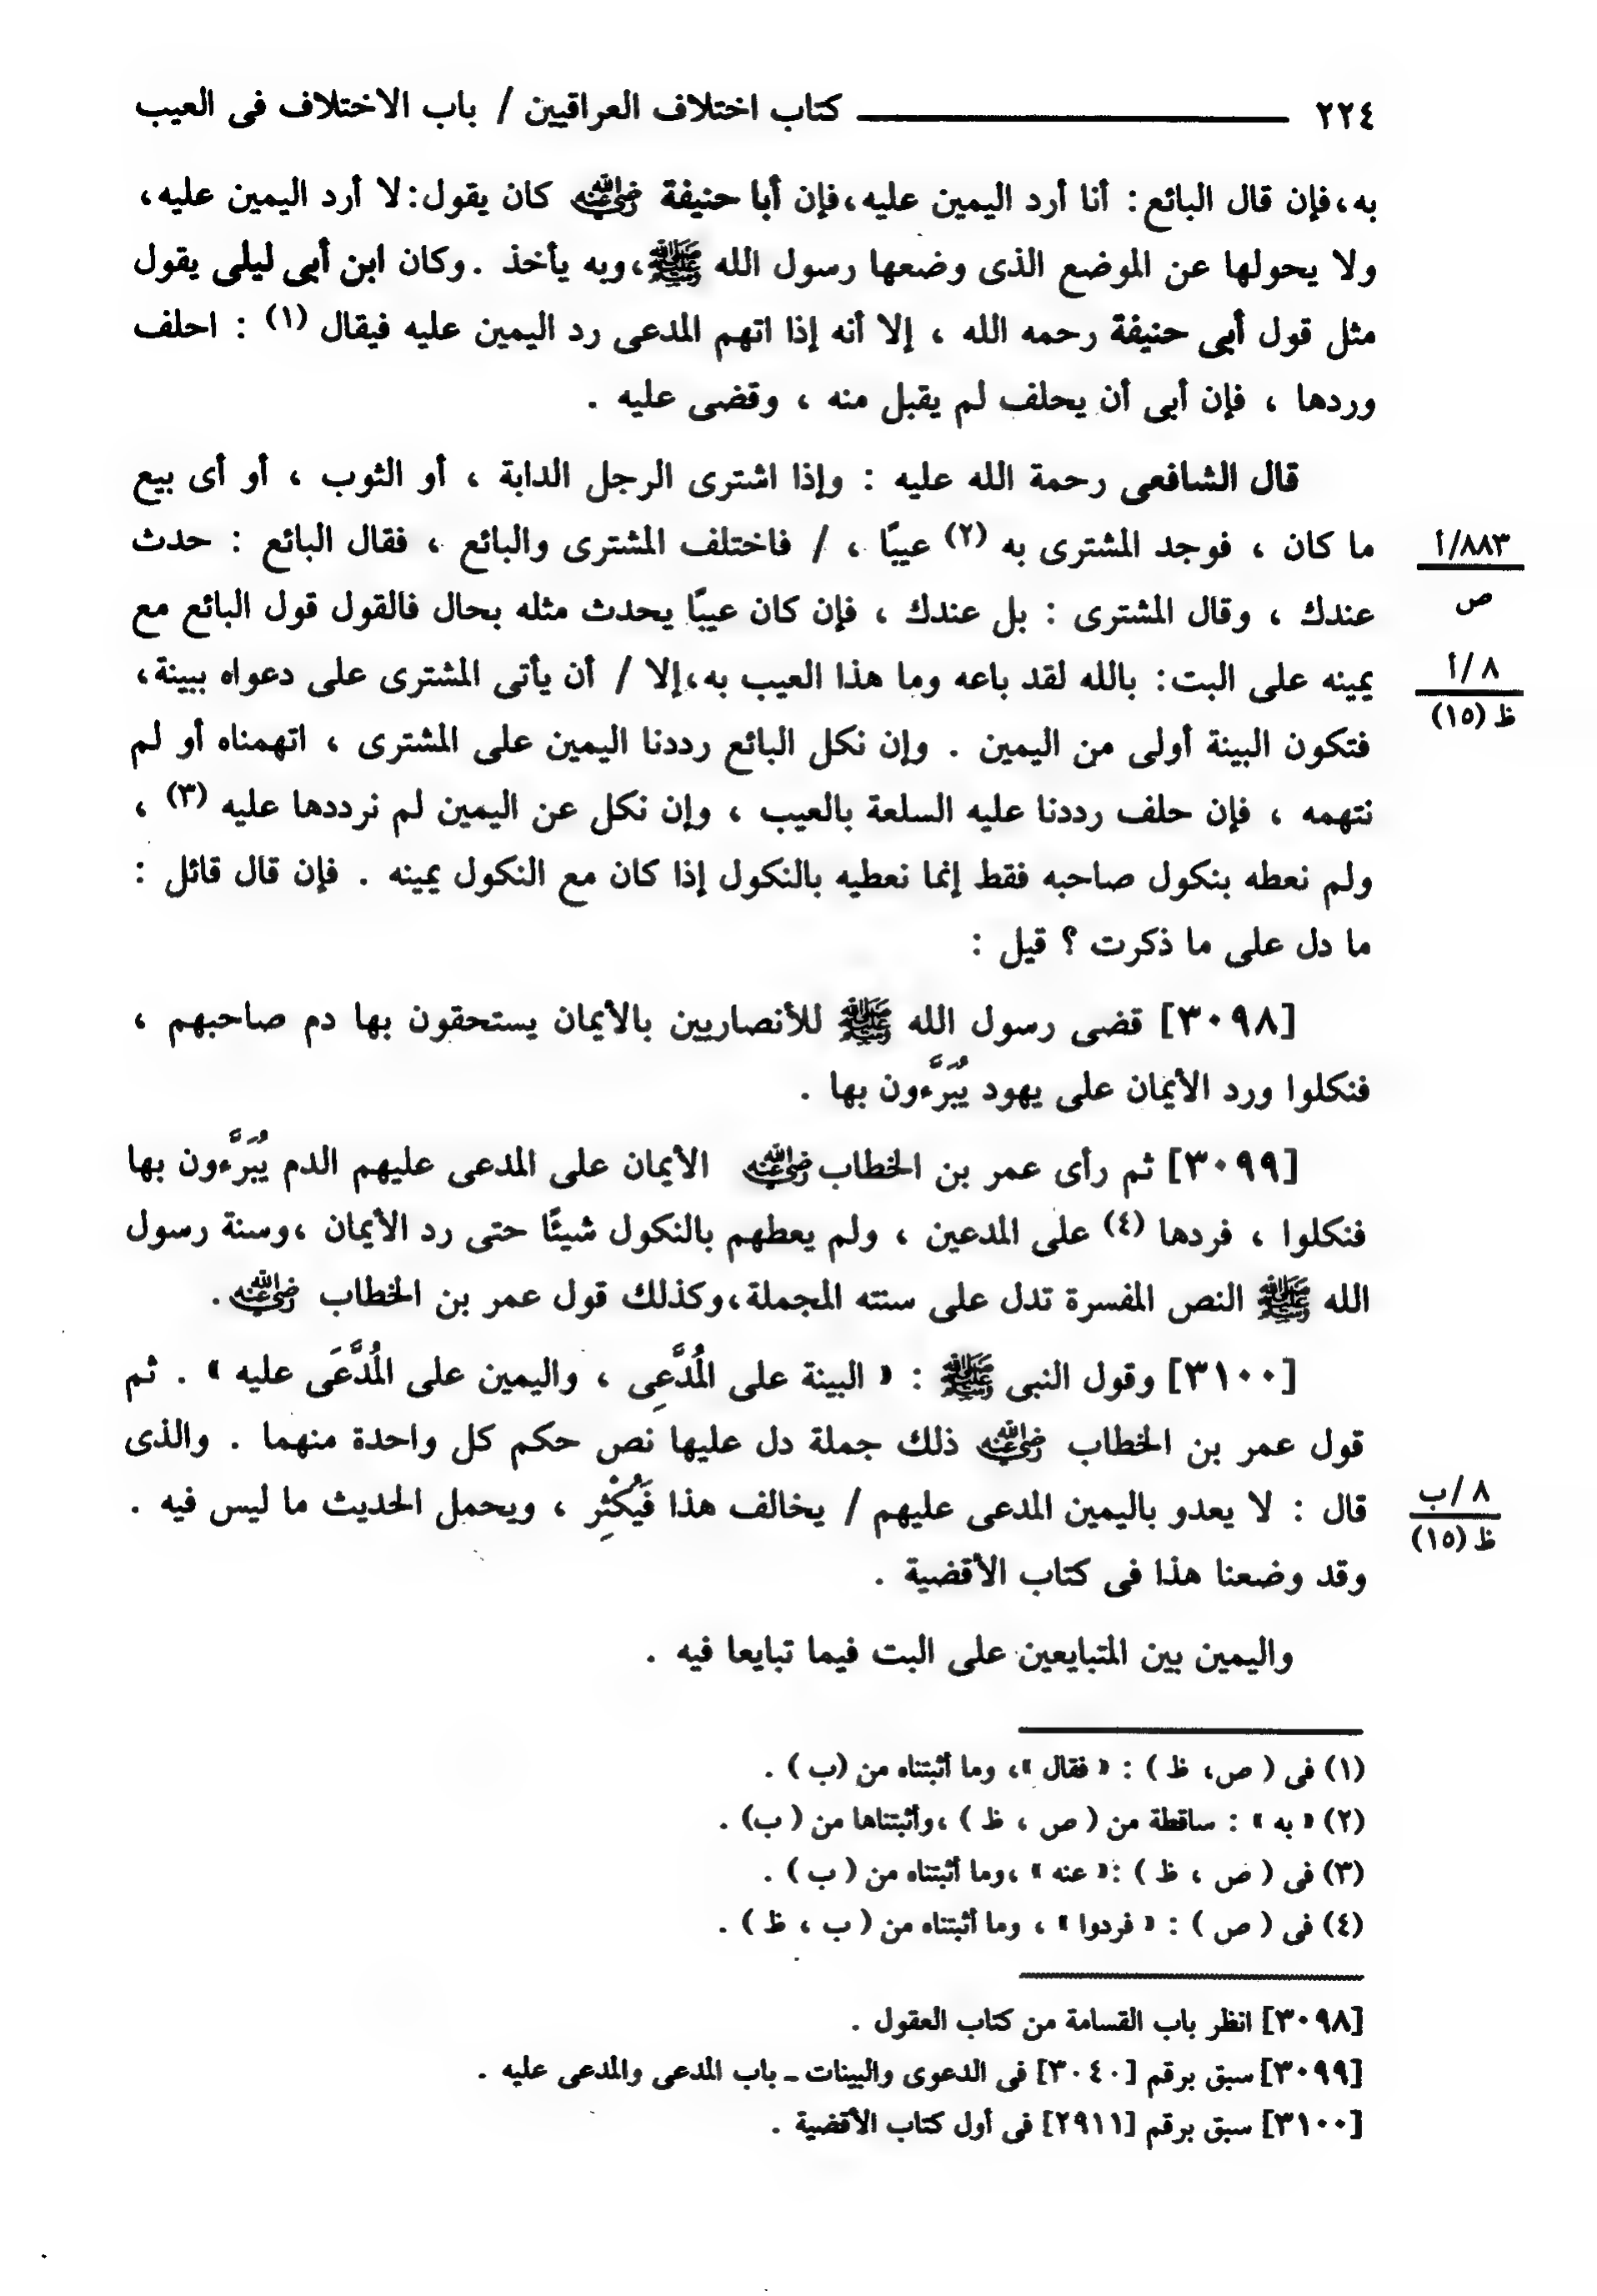 ٢٢٤ كتاب اختلاف العراقيين / باب الاختلاف فى العيب
به، فإن قال البائع: أنا أرد اليمين عليه، فإن أبا حنيفة رضي الله عنه كان يقول: لا أرد اليمين عليه،
ولا يحولها عن الموضع الذى وضعها رسول الله ﷺ، وبه يأخذ . وكان ابن أبى ليلى يقول
مثل قول أبى حنيفة رحمه الله ، إلا أنه إذا اتهم المدعى رد اليمين عليه فيقال (١) : احلف
وردها ، فإن أبى أن يحلف لم يقبل منه ، وقضى عليه .
قال الشافعى رحمة الله عليه : وإذا اشترى الرجل الدابة ، أو الثوب ، أو أى بيع
ما كان ، فوجد المشترى به (٢) عيبًا ، / فاختلف المشترى والبائع ، فقال البائع : حدث
٨٨٣/أ
ص
عندك ، وقال المشترى : بل عندك ، فإن كان عيبًا يحدث مثله بحال فالقول قول البائع مع
يمينه على البت: بالله لقد باعه وما هذا العيب به، إلا / أن يأتى المشترى على دعواه ببينة،
٨/أ
ظ (١٥)
فتكون البينة أولى من اليمين . وإن نكل البائع رددنا اليمين على المشترى ، اتهمناه أو لم
نتهمه ، فإن حلف رددنا عليه السلعة بالعيب ، وإن نكل عن اليمين لم نرددها عليه (٣) ،
ولم نعطه بنكول صاحبه فقط إنما نعطيه بالنكول إذا كان مع النكول يمينه . فإن قال قائل :
ما دل على ما ذكرت ؟ قيل :
[٣٠٩٨] قضى رسول الله ﷺ للأنصاريين بالأيمان يستحقون بها دم صاحبهم ،
فنكلوا ورد الأيمان على يهود يُبَرَّءون بها .
[٣٠٩٩] ثم رأى عمر بن الخطاب رضي الله عنه الأيمان على المدعى عليهم الدم يُبَرَّءون بها
فنكلوا ، فردها (٤) على المدعين ، ولم يعطهم بالنكول شيئًا حتى رد الأيمان ، وسنة رسول
الله ﷺ النص المفسرة تدل على سنته المجملة، وكذلك قول عمر بن الخطاب رضي الله عنه .
[٣١٠٠] وقول النبى ﷺ : « البينة على المُدَّعِى ، واليمين على المُدَّعَى عليه » . ثم
قول عمر بن الخطاب رضي الله عنه ذلك جملة دل عليها نص حكم كل واحدة منهما . والذى
قال : لا يعدو باليمين المدعى عليهم / يخالف هذا فَيُكْثِر ، ويحمل الحديث ما ليس فيه .
٨/ب
ظ (١٥)
وقد وضعنا هذا فى كتاب الأقضية .
واليمين بين المتبايعين على البت فيما تبايعا فيه .
(١) فى ( ص، ظ ) : « فقال »، وما أثبتناه من (ب ) .
(٢) « به » : ساقطة من ( ص ، ظ ) ، وأثبتناها من ( ب) .
(٣) فى ( ص ، ظ ) : « عنه » ، وما أثبتناه من ( ب ) .
(٤) فى ( ص ) : « فردوا » ، وما أثبتناه من ( ب ، ظ ) .
[٣٠٩٨] انظر باب القسامة من كتاب العقول .
[٣٠٩٩] سبق برقم [٣٠٤٠] فى الدعوى والبينات ـ باب المدعى والمدعى عليه .
[٣١٠٠] سبق برقم [٢٩١١] فى أول كتاب الأقضية .